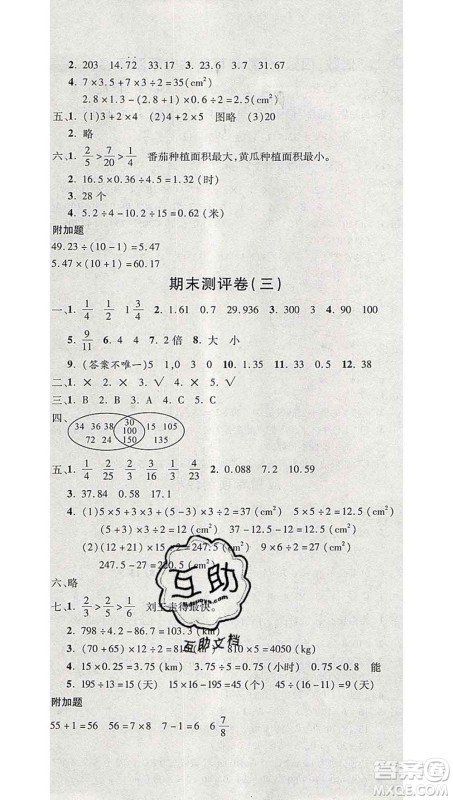 2. 203　14.72　3. 23.6　3.7　31.67
4. 7×3.5+7×3÷2=35(cm²)
2.8×1.5-(2.8+1)×0.5÷2=2.5(cm²)
五、1. (1)3+2×4　(2)2+2×4　图略　(3)20
2. 略
六、1. 2/5＞2/7＞1/4　番茄种植面积最大,黄瓜种植面积最小。
2. 16.5×0.36÷4.5=1.32(时)
3. 28个
4. 5.2÷4-10.2÷15=0.62(米)
附加题
49.23÷(10-1)=5.47
5.47×(10+1)=60.17
期末测评卷(三)
一、1. 1/4　1/2　1 3/4　2. 1.61　0.7　3. 300　3　4. 90　100
5. 9/11　6. 40　4　7. 2倍　8. 大　小
9. (答案不唯一)5　1,0　3　0　10. 1.35　11. 4　12. 86.4
二、1. ×　2. ×　3. √　4. √　5. ×
三、1. B　2. A　3. B　4. B　5. C
四、
34 36 38　30　15 105
100
72 24　150　135
五、1. 1/4　2/25　3/25　2/3　2. 0.088　7.2　0.03
3. 37.84　0.58　17.1
4. (1)5×5+(5+3)×2÷2=33(cm²)
(5+3)×3÷2=12(cm²)　33-12=21(cm²)
(2)(12+21)×15÷2=247.5(cm²)　9×6÷2=27(cm²)
247.5-27=220.5(cm²)
六、略
七、1. 2/3＞2/5＞1/2　刘玉走得最快。
2. 798÷4.2-86.7=103.3(km)
3. (70+65)×12÷2=810(m²)　810×5=4050(kg)
4. 15×0.25=3.75(km)　3.75÷5=0.75(小时)　0.75<0.8　能
5. 195÷13=15(天)　15×15=225(页)　225÷25=9(天)
附加题
55+1=56　56=7×8　7-1=6　6 7/8
互助
互助文档
答案圈
MXQE.COM